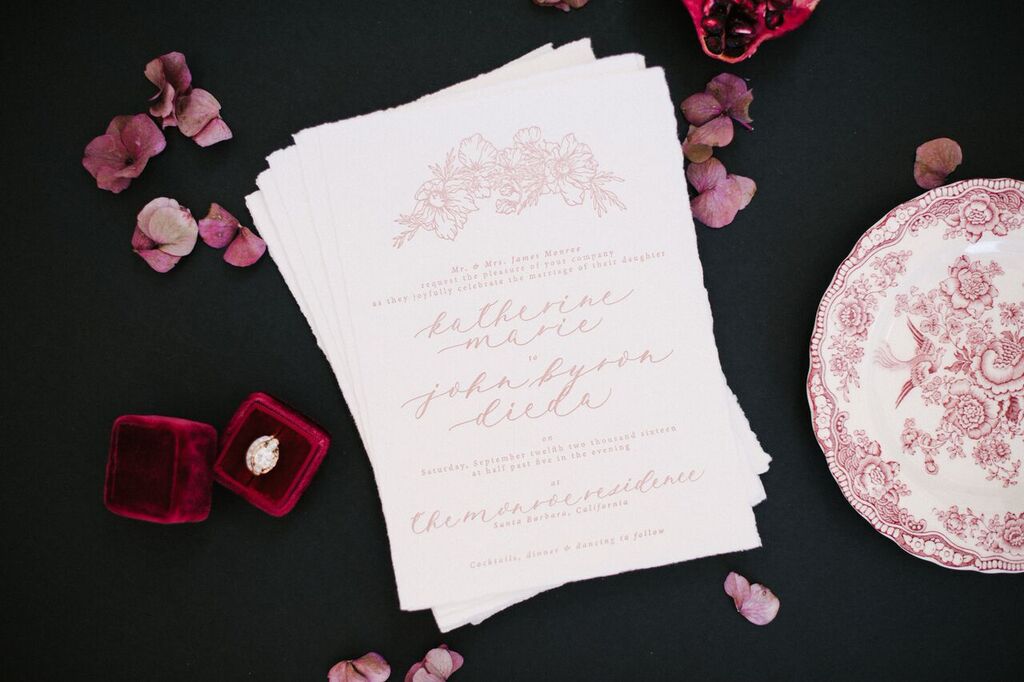 Mr. & Mrs. James Monroe
request the pleasure of your company
as they joyfully celebrate the marriage of their daughter
katherine
marie
to
john byron
dieda
on
Saturday, September twelfth two thousand sixteen
at half past five in the evening
at
the monroe residence
Santa Barbara, California
Cocktails, dinner & dancing to follow